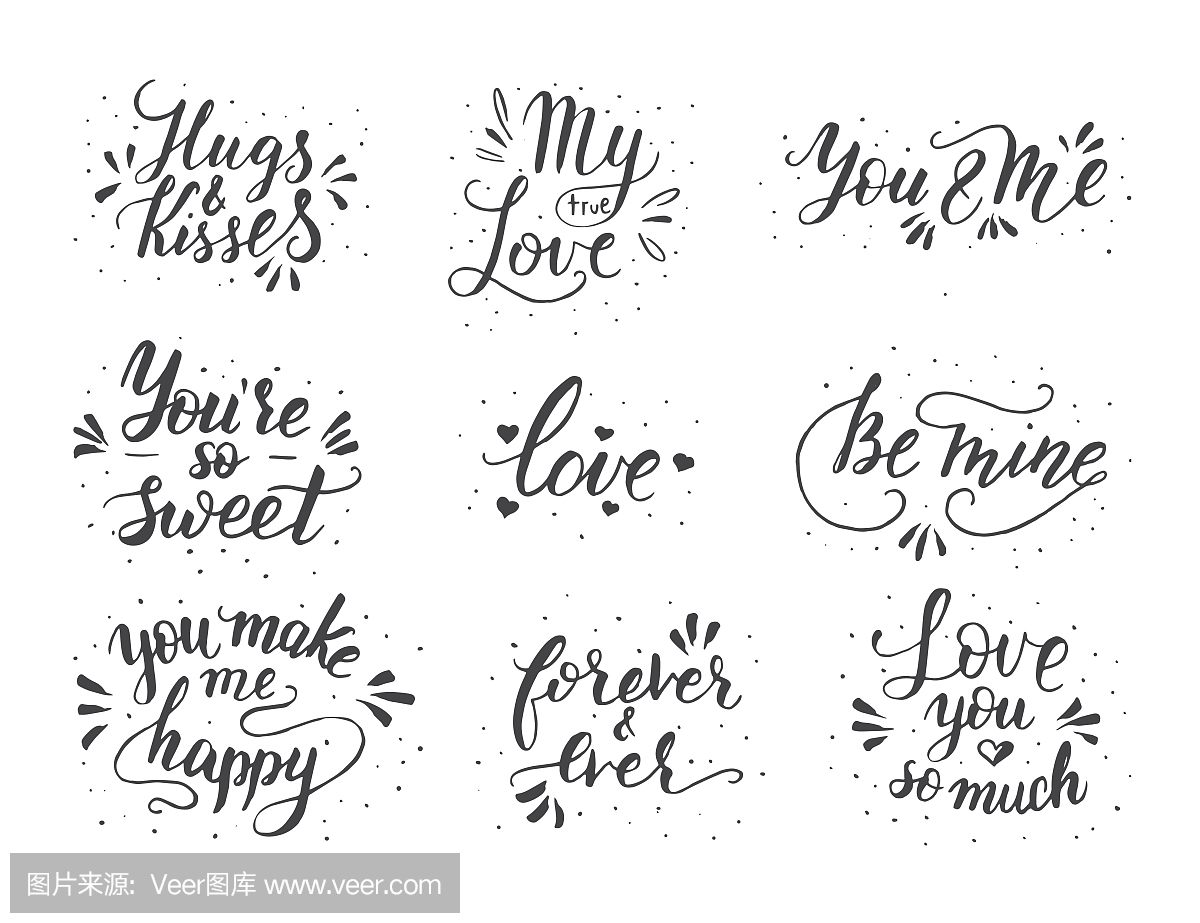 Hugs
&
Kisses
My
true
Love
You & Me
You're
so
sweet
love
Be mine
you make
me
happy
forever
&
ever
Love
you
so much
图片来源: Veer图库 www.veer.com